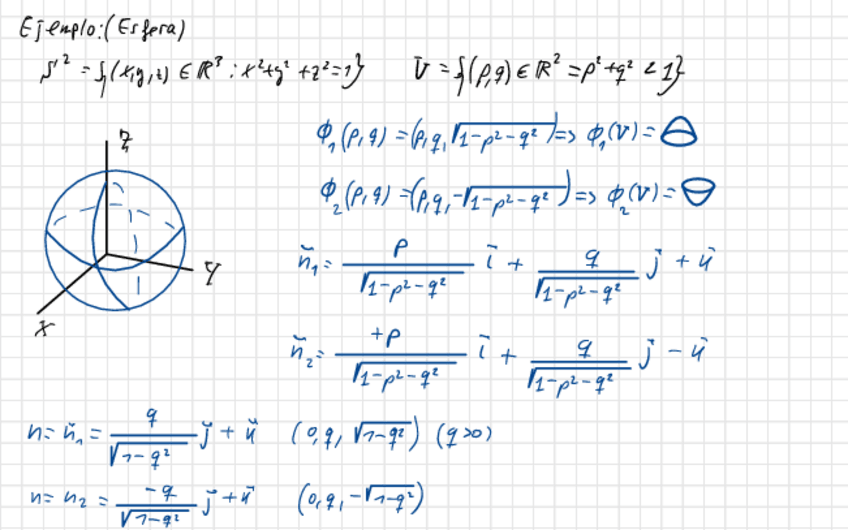 Ejemplo:(Esfera)
S² = {(x,y,z) ∈ ℝ³ : x²+y²+z²=1} U = {(p,q) ∈ ℝ² = p²+q² < 1}
Z
ϕ₁(p,q) = (p,q,√(1-p²-q²)) => ϕ₁(U) =
ϕ₂(p,q) = (p,q,-√(1-p²-q²)) => ϕ₂(U) =
Y
X
n̄₁ = p/√(1-p²-q²) ī + q/√(1-p²-q²) j̄ + k̄
n̄₂ = +p/√(1-p²-q²) ī + q/√(1-p²-q²) j̄ - k̄
n = n̄₁ = q/√(1-q²) j̄ + k̄ (0,q,√(1-q²)) (q>0)
n = n₂ = -q/√(1-q²) j̄ + k̄ (0,q,-√(1-q²))